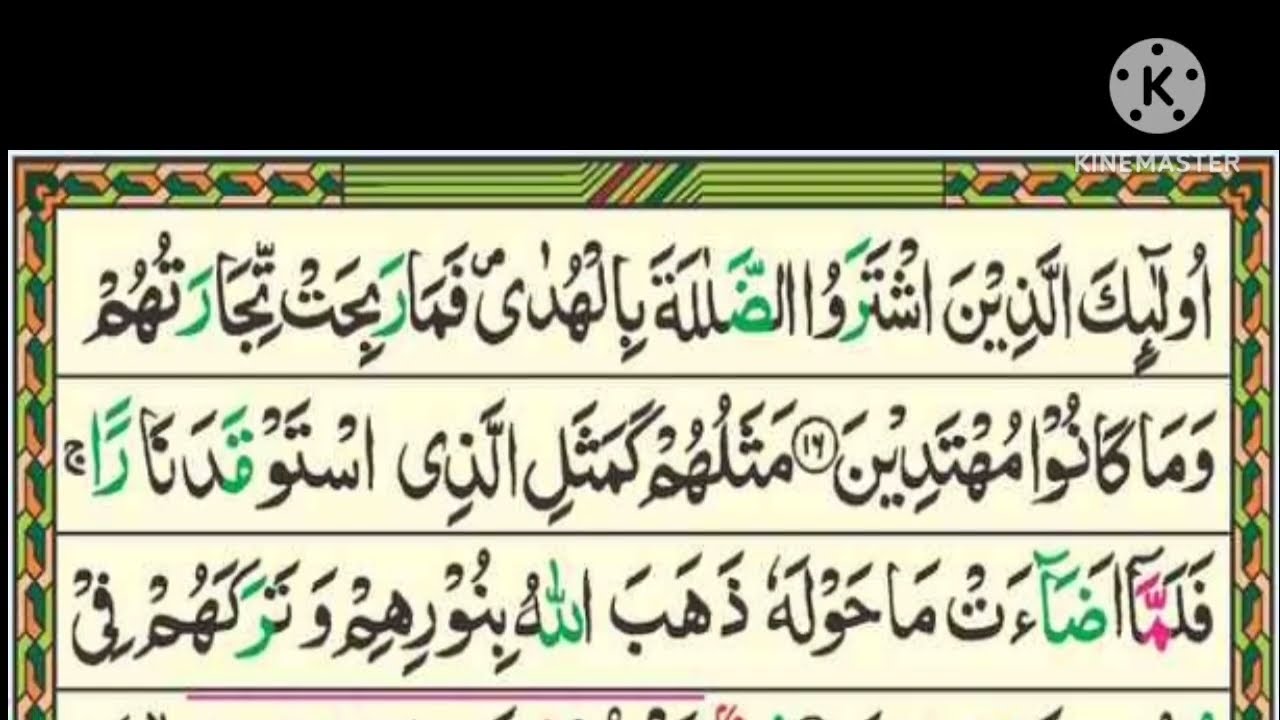 K
KINEMASTER
اُولٰٓئِكَ الَّذِيْنَ اشْتَرَوُا الضَّلٰلَةَ بِالْهُدٰى ۪ فَمَا رَبِحَتْ تِّجَارَتُهُمْ
وَمَا كَانُوْا مُهْتَدِيْنَ ﴿۱۶﴾ مَثَلُهُمْ كَمَثَلِ الَّذِى اسْتَوْقَدَ نَارًا ۚ
فَلَمَّآ اَضَآءَتْ مَا حَوْلَهٗ ذَهَبَ اللّٰهُ بِنُوْرِهِمْ وَتَرَكَهُمْ فِىْ